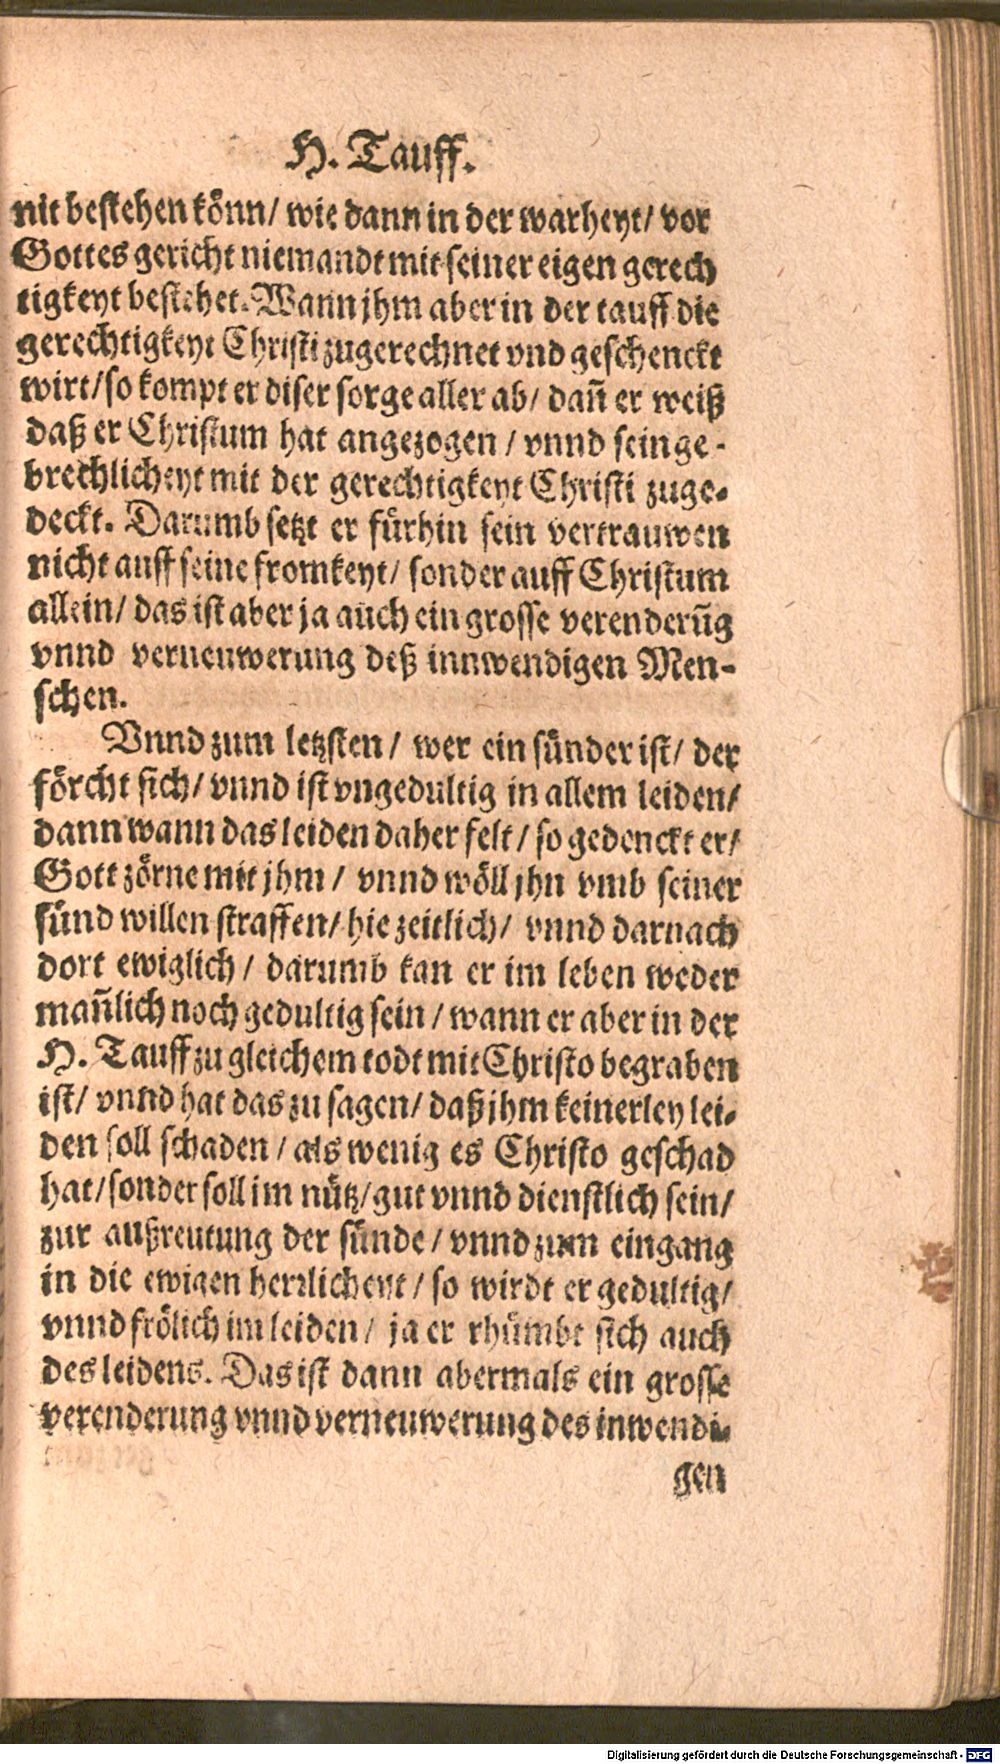 H. Tauff.
nit bestehen könn/ wie dann in der warheyt/ vor
Gottes gericht niemandt mit seiner eigen gerech
tigkeyt bestehet. Wann jhm aber in der tauff die
gerechtigkeyt Christi zugerechnet vnd geschenckt
wirt/ so kompt er diser sorge aller ab/ dañ er weiß
daß er Christum hat angezogen / vnnd sein ge-
brechlicheyt mit der gerechtigkeyt Christi zuge-
deckt. Darumb setzt er fürhin sein vertrauwen
nicht auff seine fromkeyt/ sonder auff Christum
allein/ das ist aber ja auch ein grosse verenderũg
vnnd verneuwerung deß innwendigen Men-
schen.
Vnnd zum letzsten / wer ein sünder ist/ der
förcht sich/ vnnd ist vngedultig in allem leiden/
dann wann das leiden daher felt / so gedenckt er/
Gott zörne mit jhm / vnnd wöll jhn vmb seiner
sünd willen straffen/ hie zeitlich/ vnnd darnach
dort ewiglich / darumb kan er im leben weder
mañlich noch gedultig sein / wann er aber in der
H. Tauff zu gleichem todt mit Christo begraben
ist/ vnnd hat das zu sagen/ daß jhm keinerley lei-
den soll schaden / als wenig es Christo geschad
hat/ sonder soll im nütz/ gut vnnd dienstlich sein/
zur außreutung der sünde / vnnd zum eingang
in die ewigen herrlicheyt / so wirdt er gedultig/
vnnd frölich im leiden / ja er rhümbt sich auch
des leidens. Das ist dann abermals ein grosse
verenderung vnnd verneuwerung des inwendi-
gen
Digitalisierung gefördert durch die Deutsche Forschungsgemeinschaft - DFG